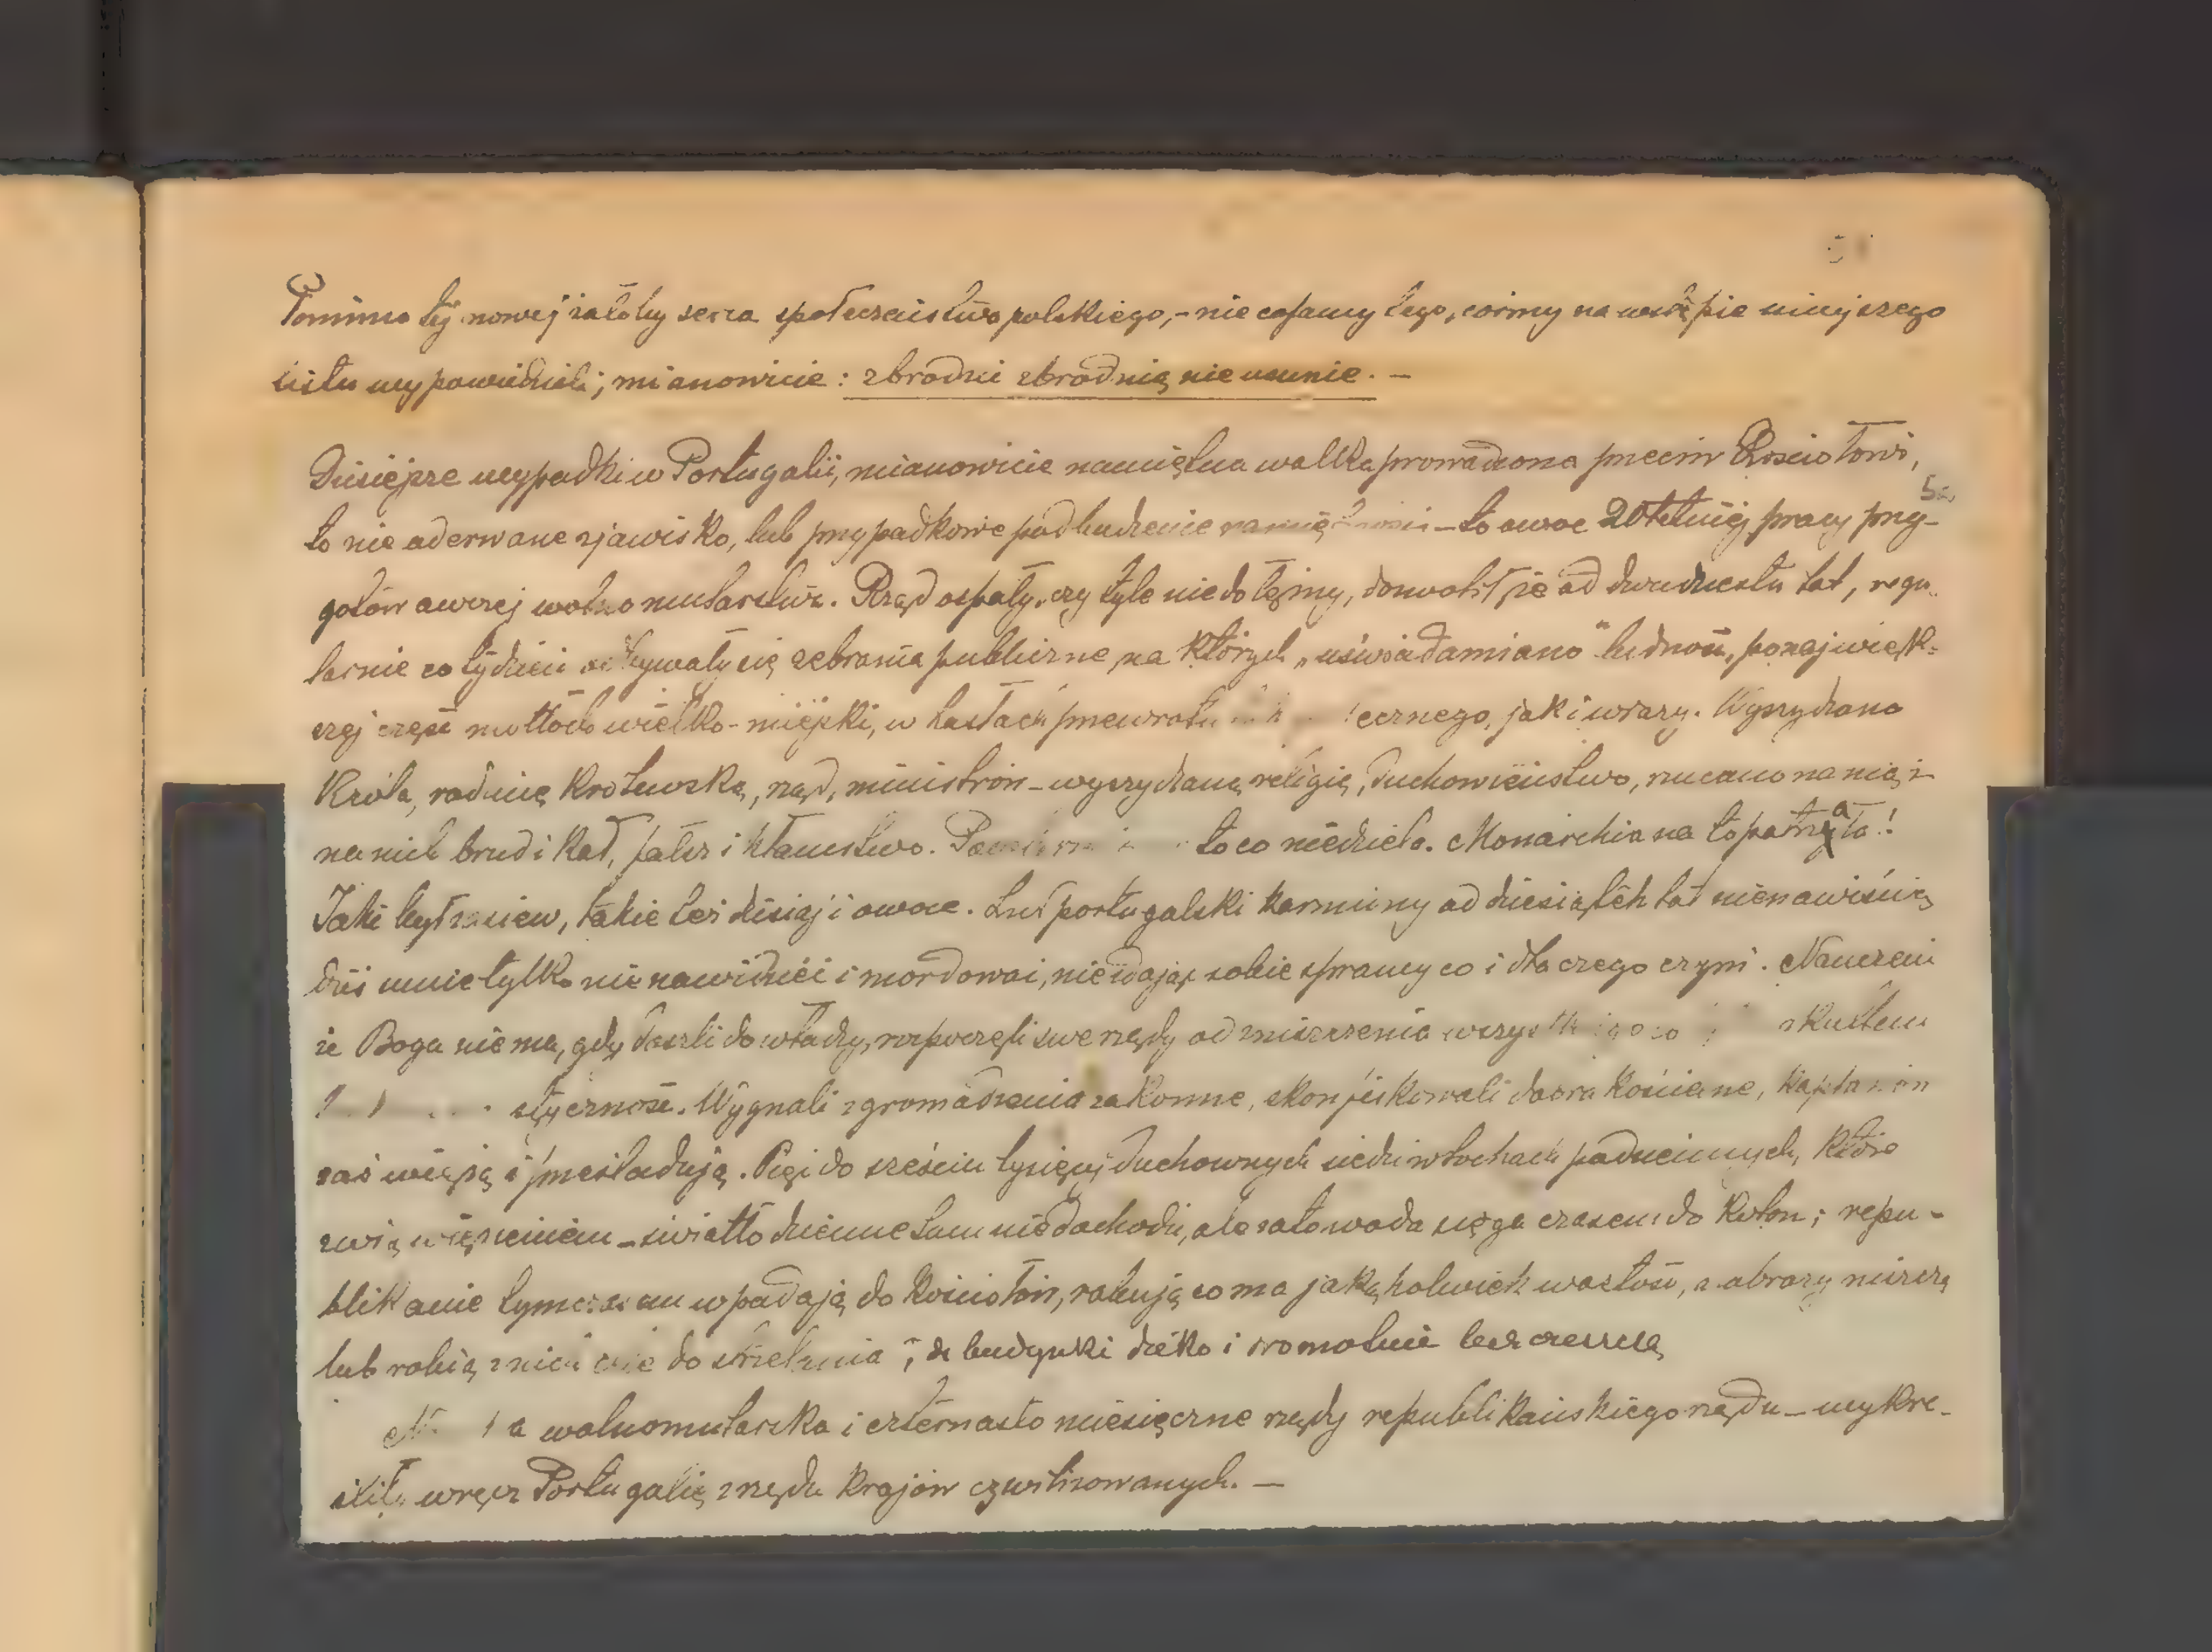 Pomimo tej nowej żałoby serca społeczeństwa polskiego,- nie cofamy tego, cośmy na wstępie niniejszego
listu wypowiedzieli; mianowicie: zbrodni zbrodnią nie usunie. —
Dzisiejsze wypadki w Portugalii, mianowicie namiętna walka prowadzona przeciw Kościołowi,
to nie oderwane zjawisko, lub przypadkowe podbudzenie — to owoc 20 letniej pracy przy-
gotowawczej wolnomularstwa. Rząd ospały, czy tyle niedołężny, dozwolił że od dwudziestu lat, regu-
larnie co tydzień odbywały się zebrania publiczne, na których „uświadamiano" ludność, po najwięk-
szej części motłoch wielko-miejski, w hasłach przewrotu jak i wiary. Wyszydzano
Króla, rodzinę Królewską, rząd, ministrów - wyszydzano religię, duchowieństwo, rzucano na nią i
na nich brud i kał, fałsz i kłamstwo. to co niedziela. Monarchia na to patrzała!
Jaki był zasiew, takie też dzisiaj i owoce. Lud portugalski karmiony od dziesiątek lat nienawiścią
dziś umie tylko nienawidzieć i mordować, nie zdając sobie sprawy co i dla czego czyni. Nauczeni
że Boga nie ma, gdy doszli do władzy, rozpoczęli swe rządy od zniszczenia
styczność. Wygnali zgromadzenia zakonne, skonfiskowali dobra kościelne, kapłanów
zaś więżą i prześladują. Pięć do sześciu tysięcy duchownych siedzi w lochach podziemnych, które
zwią więzieniem - światło dzienne tam nie dochodzi, ale za to woda sięga czasem do kolan; repu-
blikanie tymczasem wpadają do kościołów, rabują co ma jakąkolwiek wartość, a obrazy niszczą
lub robią z nich cele do strzelania, a budynki dziko i sromotnie bezczeszczą
wolnomularska i czternasto miesięczne rządy republikańskiego rządu - wykre-
śliły wręcz Portugalię z rzędu Krajów cywilizowanych. —